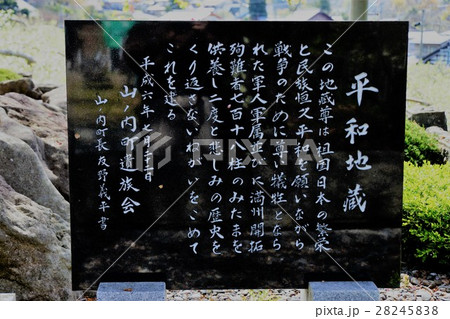 平和地蔵
この地蔵尊は祖国日本の繁栄
と民族恒久平和を願いながら
戦争のために尊い犠牲となら
れた軍人軍属並びに満州開拓
殉難者七百十一柱のみたまを
供養し二度と悲しみの歴史を
くり返さないねがいをこめて
これを建る
平成六年七月二十三日
山ノ内町遺族会
山ノ内町長 友野義平書
PIXTA
pixta.jp - 28245838